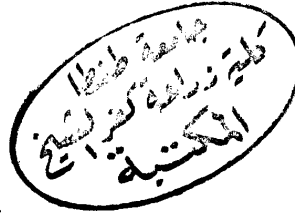 جامعة طنطا
كلية زراعة كفر الشيخ
المكتبة